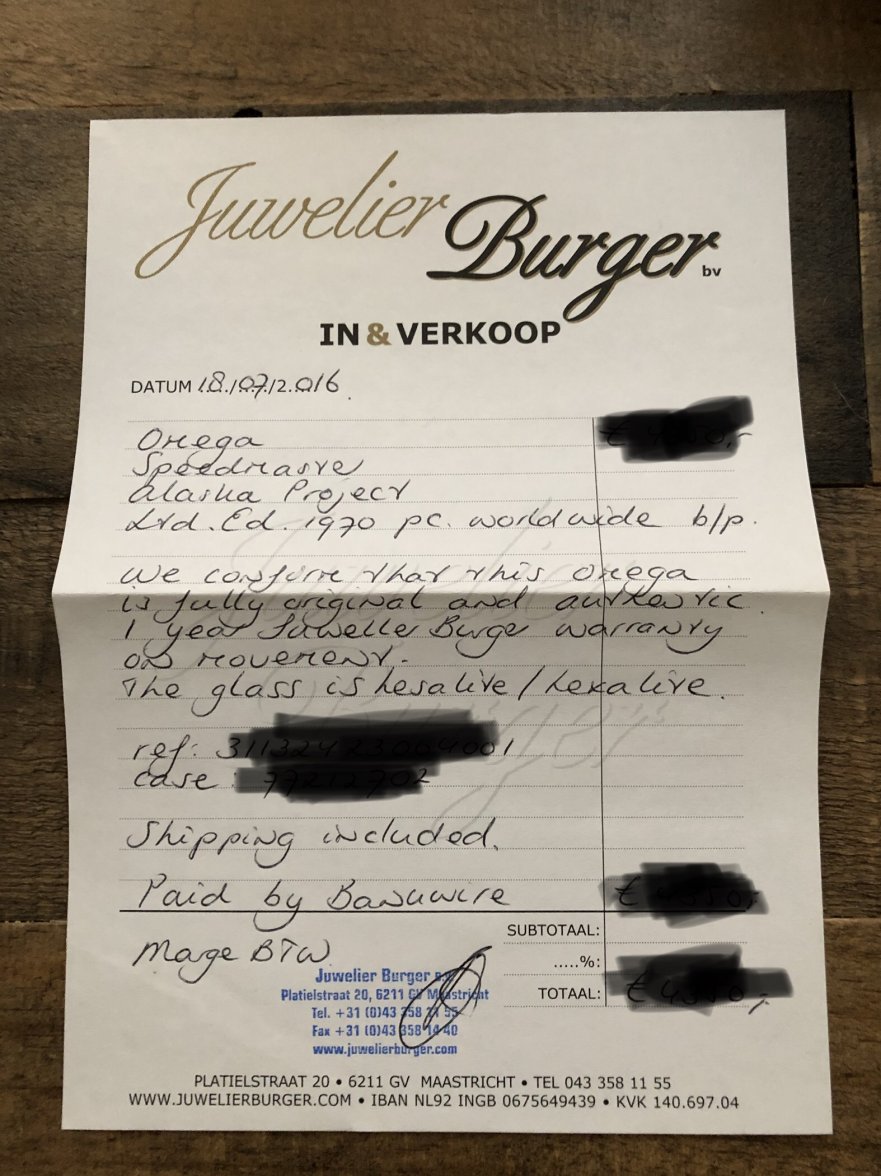 Juwelier Burger bv
IN & VERKOOP
DATUM 18/07/2016
Omega
Speedmaster
Alaska Project
Ltd. Ed. 1970 pc. worldwide b/p.
We confirm that this Omega
is fully original and authentic.
1 year Juwelier Burger warranty
on movement.
The glass is hesalite/hexalite.
ref:
case
Shipping included.
Paid by Bankwire
SUBTOTAAL:
Marge BTW
.....%:
TOTAAL:
Juwelier Burger
Platielstraat 20, 6211 GV Maastricht
Tel. +31 (0)43 358 11 55
Fax +31 (0)43 358 14 40
www.juwelierburger.com
PLATIELSTRAAT 20 • 6211 GV MAASTRICHT • TEL 043 358 11 55
WWW.JUWELIERBURGER.COM • IBAN NL92 INGB 0675649439 • KVK 140.697.04